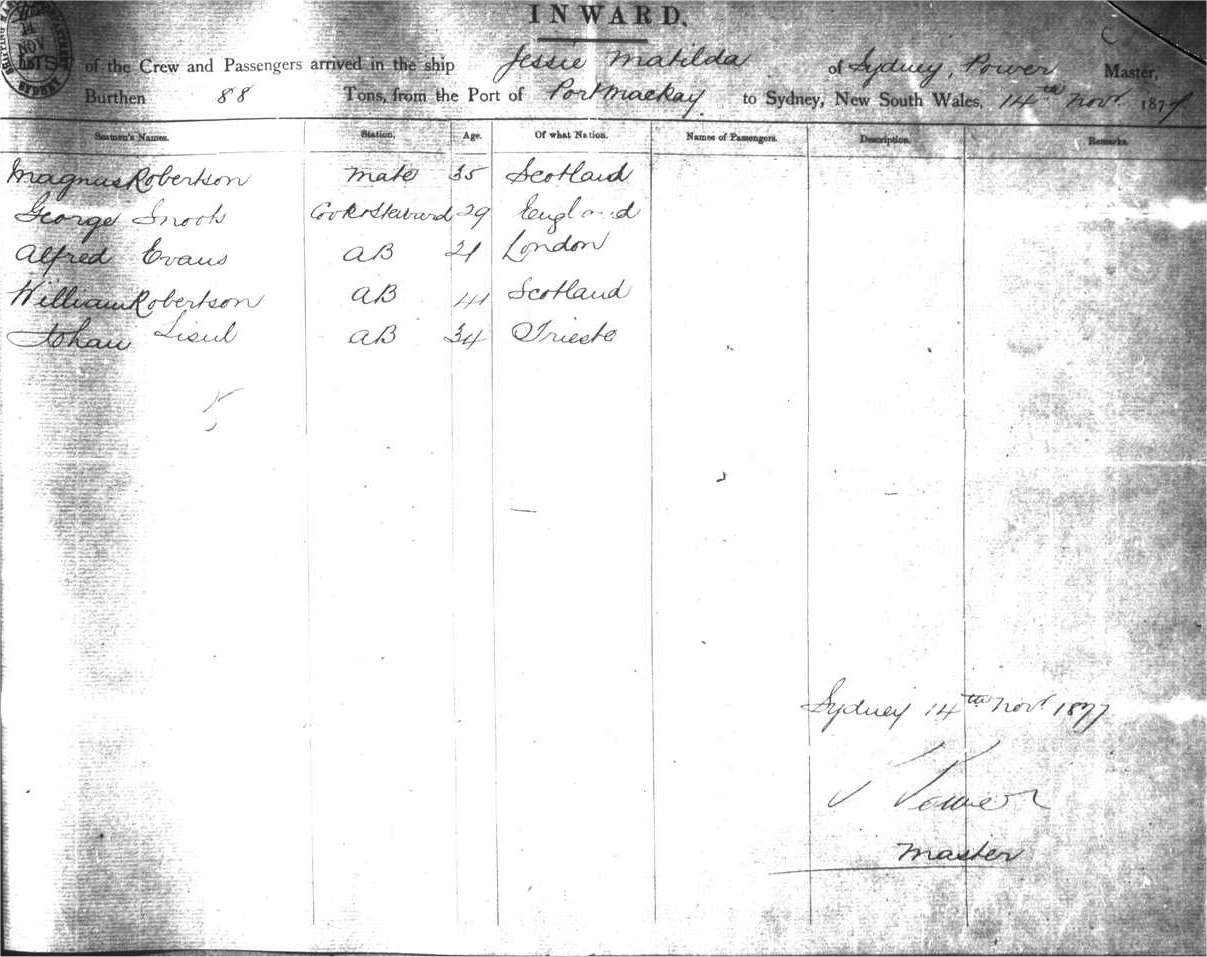 INWARD.
14
NOV
LIST of the Crew and Passengers arrived in the ship Jessie Matilda of Sydney, Power Master,
Burthen 88 Tons, from the Port of Port Mackay to Sydney, New South Wales, 14th Novr 1877
Seamen's Names. Station. Age. Of what Nation. Names of Passengers. Description. Remarks.
Magnus Robertson Mate 35 Scotland
George Snook Cook & Steward 29 England
Alfred Evans AB 21 London
William Robertson AB 41 Scotland
Johan AB 34 Trieste
5
Sydney 14th Novr 1877
Power
Master